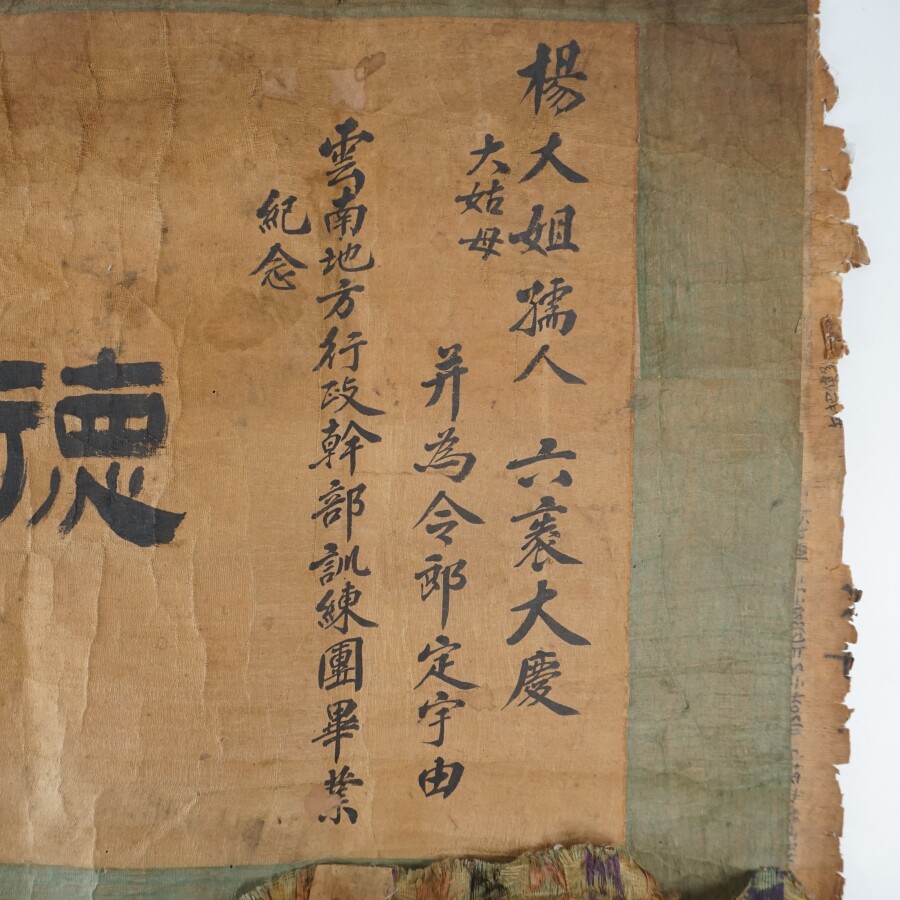 楊大姐孺人 六袠大慶
大姑母
并為令郎定宇由
雲南地方行政幹部訓練團畢業
紀念
德